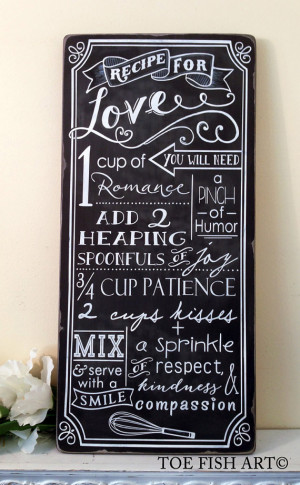 RECIPE FOR
Love
YOU WILL NEED
1 cup of
Romance
a
PINCH
of
Humor
ADD 2
HEAPING
SPOONFULS OF joy
3/4 CUP PATIENCE
2 cups kisses
+
MIX
& serve
with a
SMILE
a sprinkle
OF respect,
kindness &
compassion
TOE FISH ART©